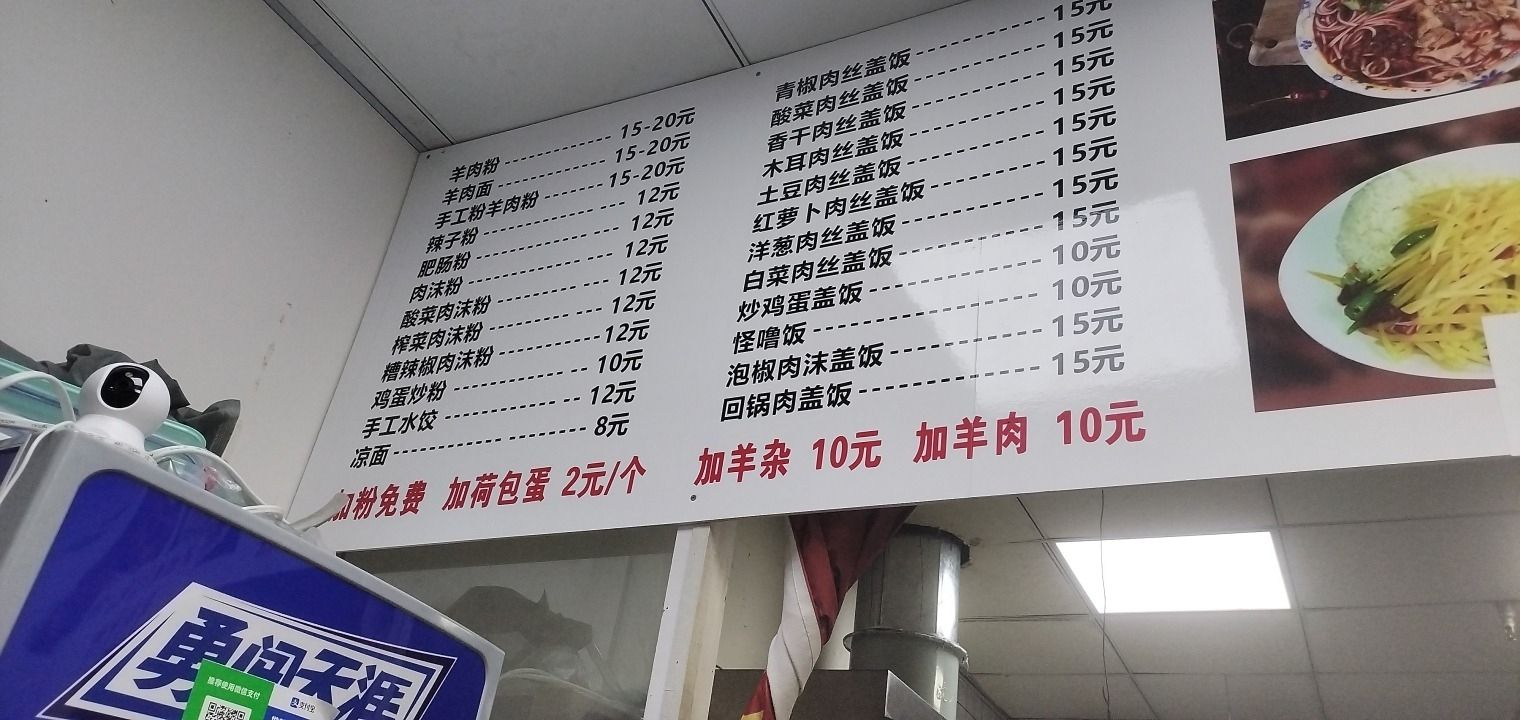 羊肉粉 15-20元
羊肉面 15-20元
手工粉羊肉粉 15-20元
辣子粉 12元
肥肠粉 12元
肉沫粉 12元
酸菜肉沫粉 12元
榨菜肉沫粉 12元
糟辣椒肉沫粉 12元
鸡蛋炒粉 10元
手工水饺 12元
凉面 8元
加粉免费 加荷包蛋 2元/个
青椒肉丝盖饭 15元
酸菜肉丝盖饭 15元
香干肉丝盖饭 15元
木耳肉丝盖饭 15元
土豆肉丝盖饭 15元
红萝卜肉丝盖饭 15元
洋葱肉丝盖饭 15元
白菜肉丝盖饭 15元
炒鸡蛋盖饭 10元
怪噜饭 10元
泡椒肉沫盖饭 15元
回锅肉盖饭 15元
加羊杂 10元 加羊肉 10元
勇闯天涯
推荐使用微信支付
支付宝